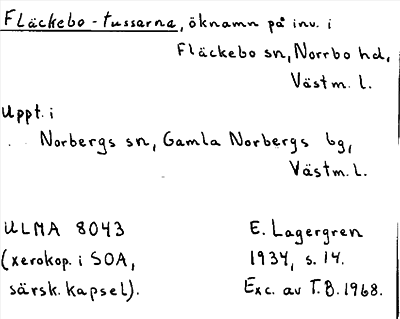 Fläckebo-tussarna, öknamn på inv. i
Fläckebo sn, Norrbo hd,
Västm. l.
Uppt. i
Norbergs sn, Gamla Norbergs bg,
Västm. l.
ULMA 8043
(xerokop. i SOA,
särsk. kapsel).
E. Lagergren
1934, s. 14.
Exc. av T.B. 1968.